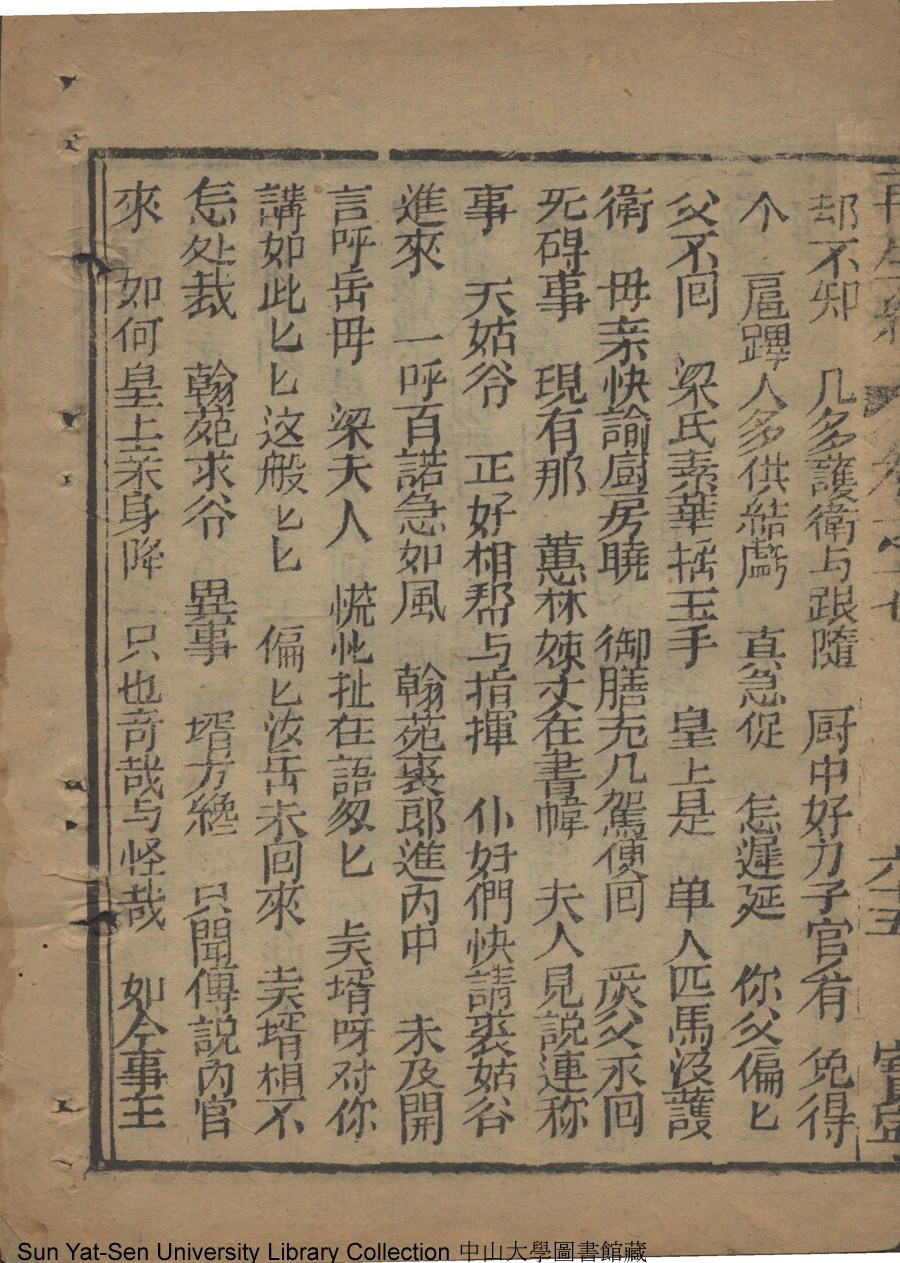 再生緣 卷之十七 六十五 寶寧
却不知 几多護衛与跟隨 厨中好力子官有 免得
个 扈蹕人多供結虧 真急促 怎遲延 你父偏匕
父不囘 梁氏素華揺玉手 皇上是 单人匹馬沒護
衛 毋亲快諭廚房曉 御膳充几駕便囘 炭父汞囘
死碍事 現有那 蕙林姊丈在書幃 夫人見説連称
事 天姑爷 正好相帮与指揮 仆妇們快請裘姑爷
進來 一呼百諾急如風 翰苑裘郎進内中 未及開
言呼岳毋 梁夫人 慌忙扯在語匆匕 矣壻呀对你
講如此匕匕这般匕匕 偏匕汝岳未回來 矣壻相不
怎处裁 翰苑求爷 異事 壻方纔 只聞傳説内官
來 如何皇上亲身降 只也奇哉与怪哉 如今事主
Sun Yat-Sen University Library Collection 中山大學圖書館藏